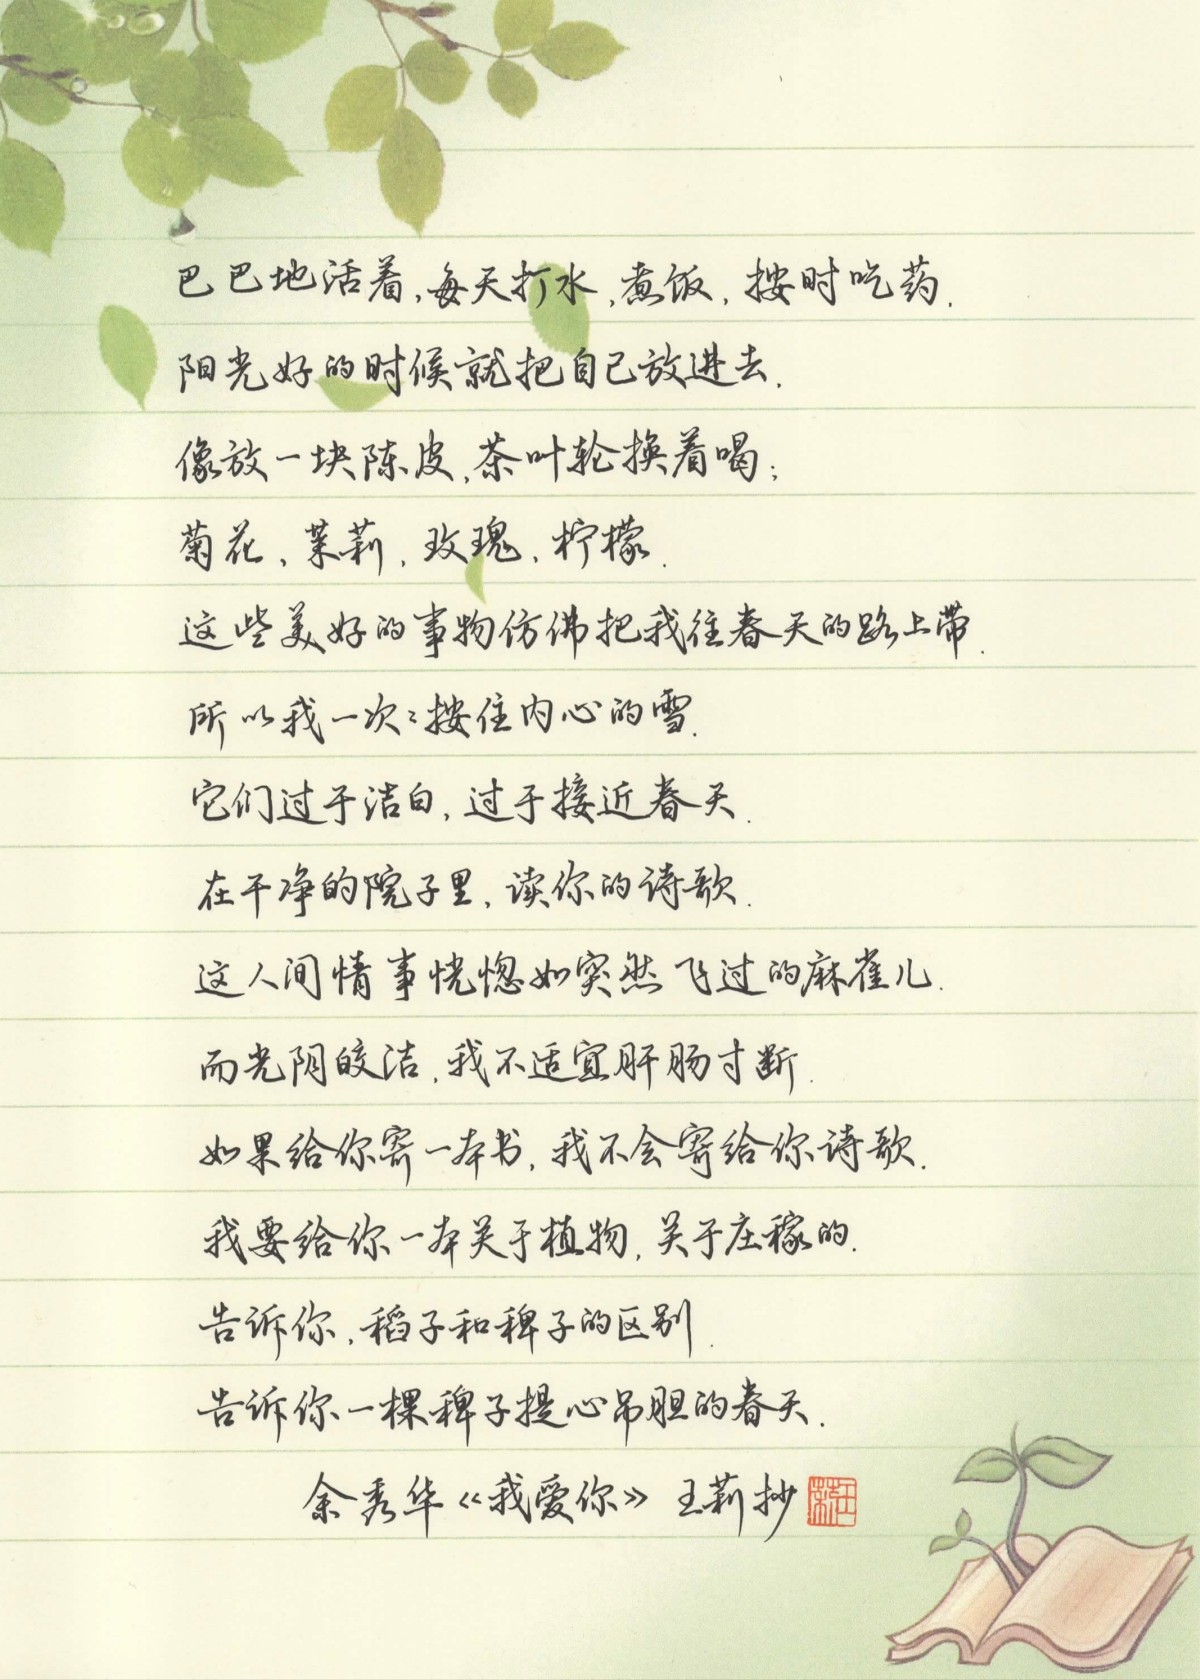 巴巴地活着,每天打水,煮饭,按时吃药.
阳光好的时候就把自己放进去.
像放一块陈皮,茶叶轮换着喝;
菊花,茉莉,玫瑰,柠檬.
这些美好的事物仿佛把我往春天的路上带.
所以我一次々按住内心的雪.
它们过于洁白,过于接近春天.
在干净的院子里,读你的诗歌.
这人间情事恍惚如突然飞过的麻雀儿.
而光阴皎洁,我不适宜肝肠寸断.
如果给你寄一本书,我不会寄给你诗歌.
我要给你一本关于植物,关于庄稼的.
告诉你,稻子和稗子的区别.
告诉你一棵稗子提心吊胆的春天.
余秀华《我爱你》 王莉抄